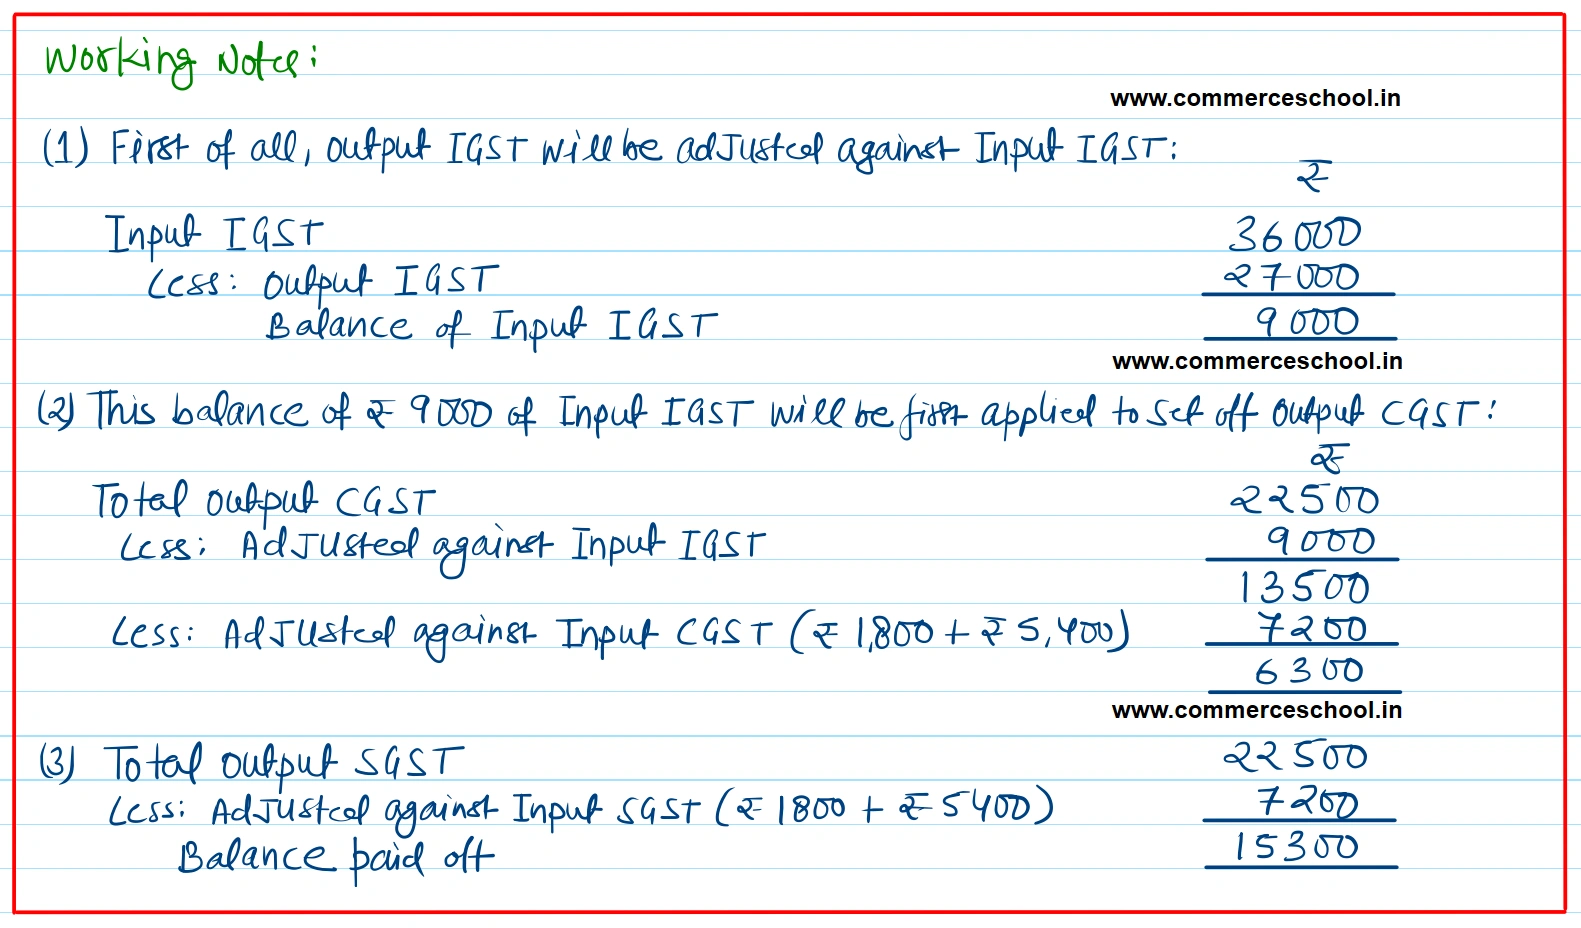 Working Notes:
www.commerceschool.in
(1) First of all, output IGST will be adjusted against Input IGST:
₹
Input IGST 36000
Less: Output IGST 27000
Balance of Input IGST 9000
www.commerceschool.in
(2) This balance of ₹ 9000 of Input IGST will be first applied to set off output CGST:
₹
Total output CGST 22500
Less: Adjusted against Input IGST 9000
13500
Less: Adjusted against Input CGST (₹ 1,800 + ₹ 5,400) 7200
6300
www.commerceschool.in
(3) Total output SGST 22500
Less: Adjusted against Input SGST (₹ 1800 + ₹ 5400) 7200
Balance paid off 15300